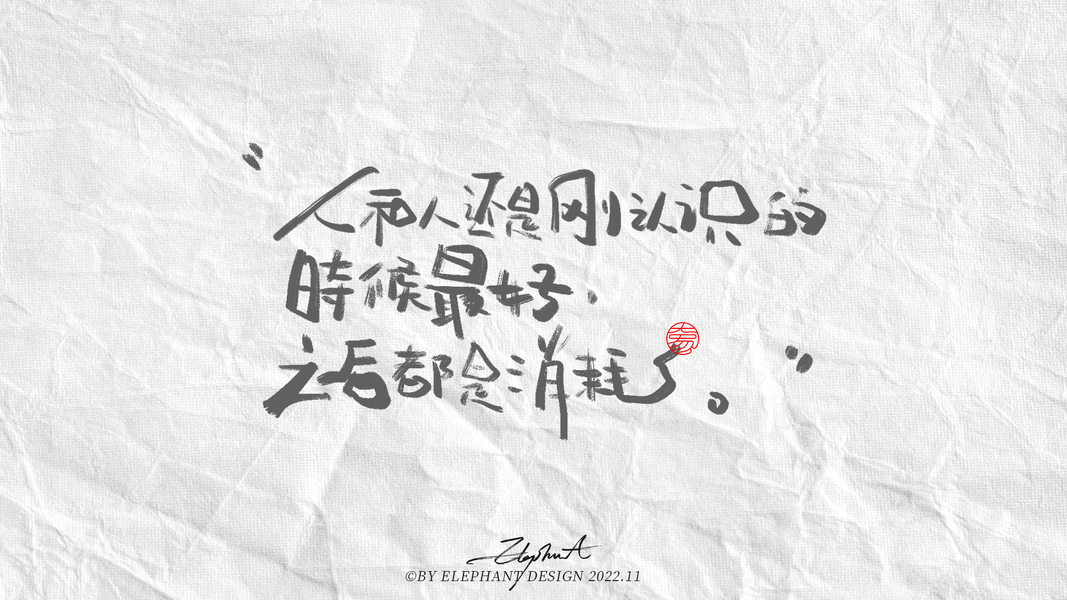 “人和人还是刚认识的
時候最好，
之后都是消耗了。”
Elephant
©BY ELEPHANT DESIGN 2022.11